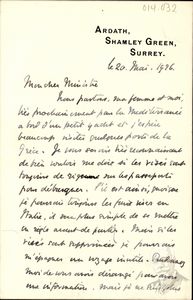 014.032
ARDATH,
SHAMLEY GREEN,
SURREY.
le 20. Mai. 1926.
Mon cher Ministre
Nous partons, ma femme et moi,
très prochainement par la Méditerranée
à bord d'un petit yacht et j'espère
beaucoup visiter quelques ports de la
Grèce. Je vous serais très reconnaissant
de bien vouloir me dire si les visés sont
toujours de sur les passeports
pour débarquer. S'il est ainsi,
je pourrais toujours les faire viser en
Italie, il me plus simple de se mettre
en règle avant de partir. Mais si les
visés sont supprimés je pourrais
m'épargner un voyage inutile.
moi de vous avoir dérangé pour
une information, mais je ne